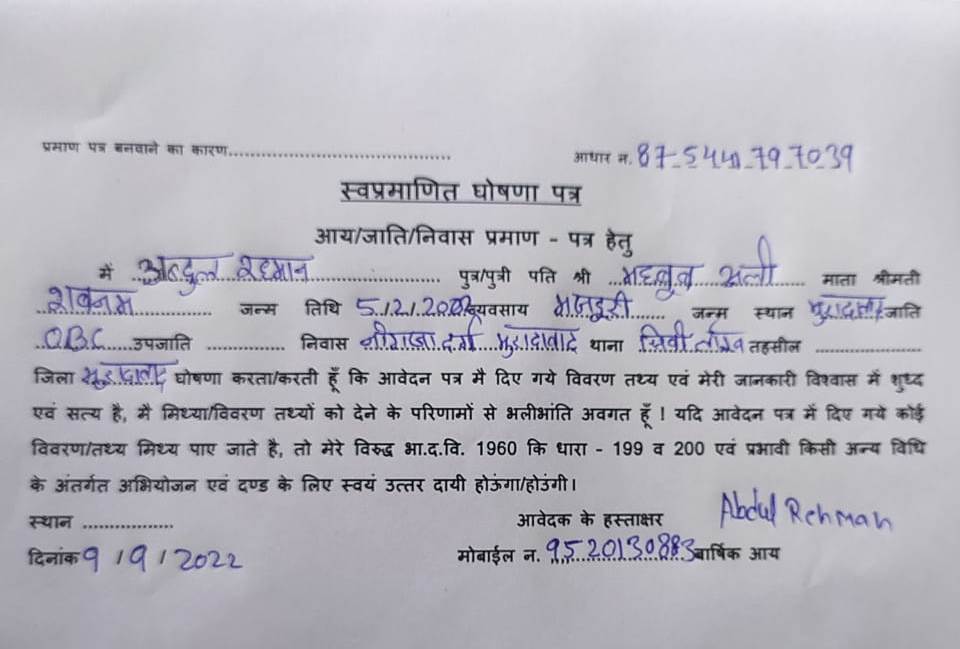 प्रमाण पत्र बनवाने का कारण........................................ आधार न. 87-5441-79-7039
स्वप्रमाणित घोषणा पत्र
आय/जाति/निवास प्रमाण - पत्र हेतु
में अब्दुल रहमान पुत्र/पुत्री पति श्री महबूब अली माता श्रीमती
शबनम जन्म तिथि 5/2/2002 व्यवसाय मजदूरी जन्म स्थान मुरादाबाद जाति
OBC उपजाति ............... निवास मुरादाबाद थाना तहसील ....................
जिला मुरादाबाद घोषणा करता/करती हूँ कि आवेदन पत्र मै दिए गये विवरण तथ्य एवं मेरी जानकारी विश्वास में शुध्द
एवं सत्य है, मै मिथ्या/विवरण तथ्यों को देने के परिणामों से भलीभांति अवगत हूँ ! यदि आवेदन पत्र में दिए गये कोई
विवरण/तथ्य मिथ्य पाए जाते है, तो मेरे विरुद्ध भा.द.वि. 1960 कि धारा - 199 व 200 एवं प्रभावी किसी अन्य विधि
के अंतर्गत अभियोजन एवं दण्ड के लिए स्वयं उत्तर दायी होऊंगा/होउंगी।
स्थान ................. आवेदक के हस्ताक्षर Abdul Rehman
दिनांक 9/9/2022 मोबाईल न. 9520130883 वार्षिक आय